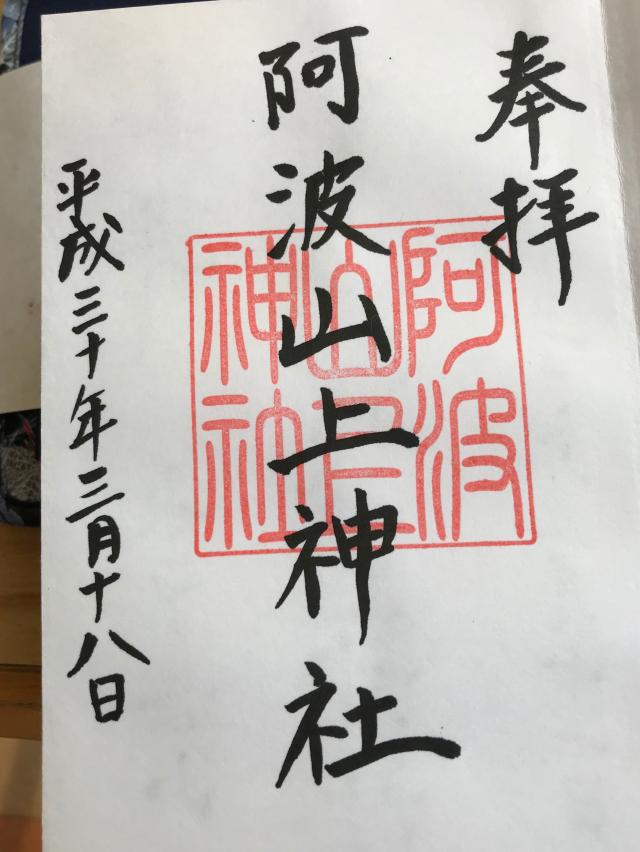 奉拝
阿波山上神社
阿波山上神社
平成三十年三月十八日